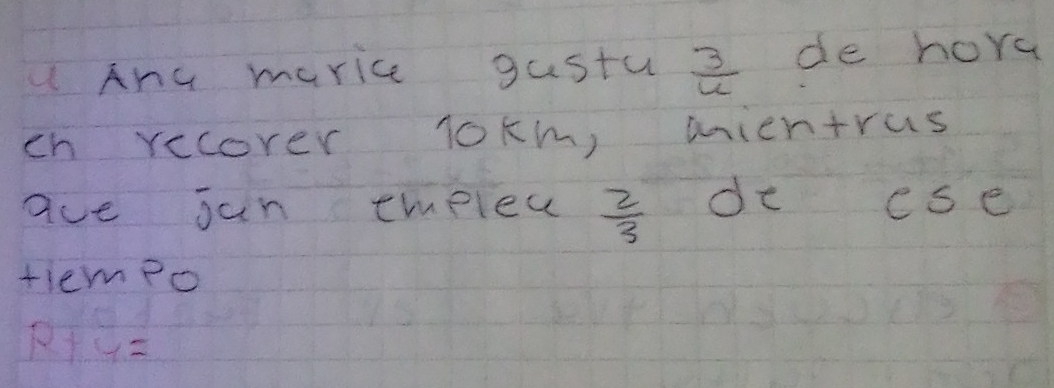 4 Ana maria gasta 3/4 de hora
en recorer 10 km, mientras
que jan emplea 2/3 de ese
tiempo
R+4=